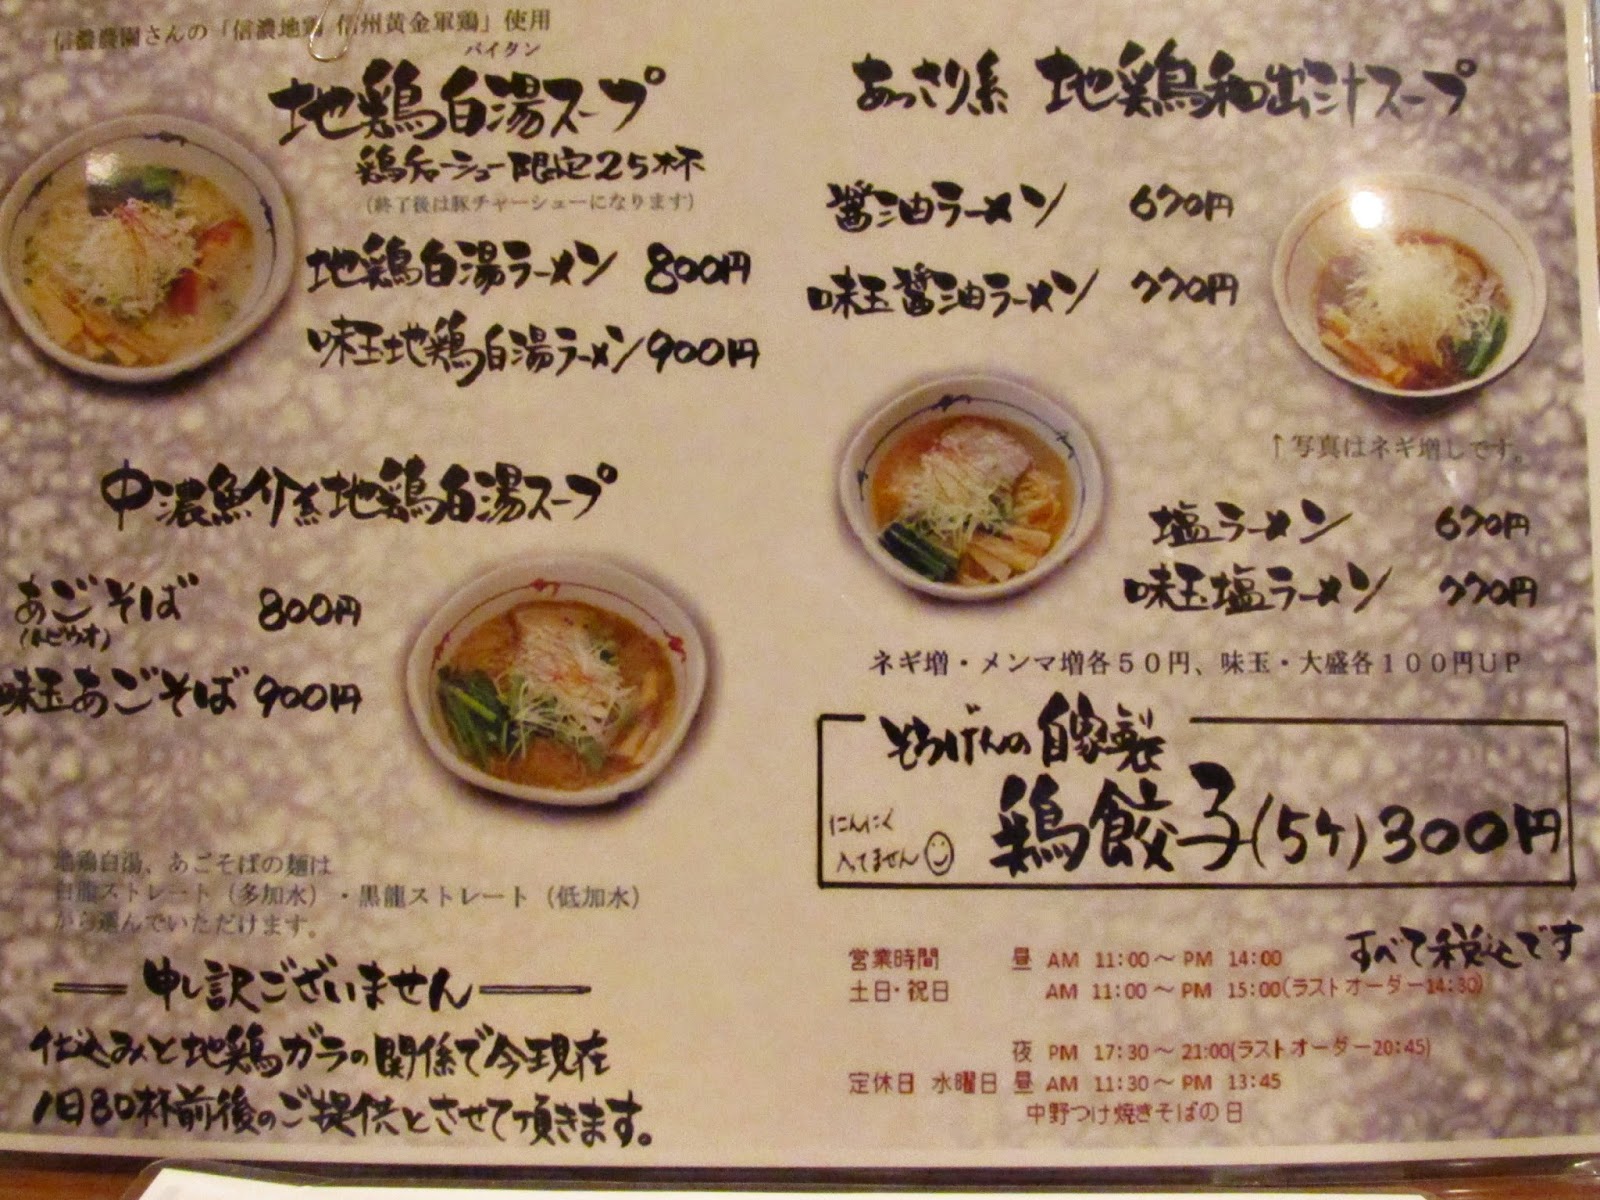 信濃農園さんの「信濃地鶏 信州黄金軍鶏」使用
パイタン
地鶏白湯スープ
鶏チャーシュー限定25杯
（終了後は豚チャーシューになります）
地鶏白湯ラーメン 800円
味玉地鶏白湯ラーメン 900円
中濃魚介系地鶏白湯スープ
あごそば 800円
(トビウオ)
味玉あごそば 900円
地鶏白湯、あごそばの麺は
白龍ストレート（多加水）・黒龍ストレート（低加水）
から選んでいただけます。
申し訳ございません
仕込みと地鶏ガラの関係で今現在
1日80杯前後のご提供とさせて頂きます。
あっさり系 地鶏和出汁スープ
醤油ラーメン 670円
味玉醤油ラーメン 770円
↑写真はネギ増しです。
塩ラーメン 670円
味玉塩ラーメン 770円
ネギ増・メンマ増各５０円、味玉・大盛各１００円UP
そうげんの自家製
にんにく
入てません
鶏餃子(5ケ)300円
すべて税込です
営業時間 昼 AM 11:00～PM 14:00
土日・祝日 AM 11:00～PM 15:00(ラストオーダー14:30)
夜 PM 17:30～21:00(ラストオーダー20:45)
定休日 水曜日 昼 AM 11:30～PM 13:45
中野つけ焼きそばの日